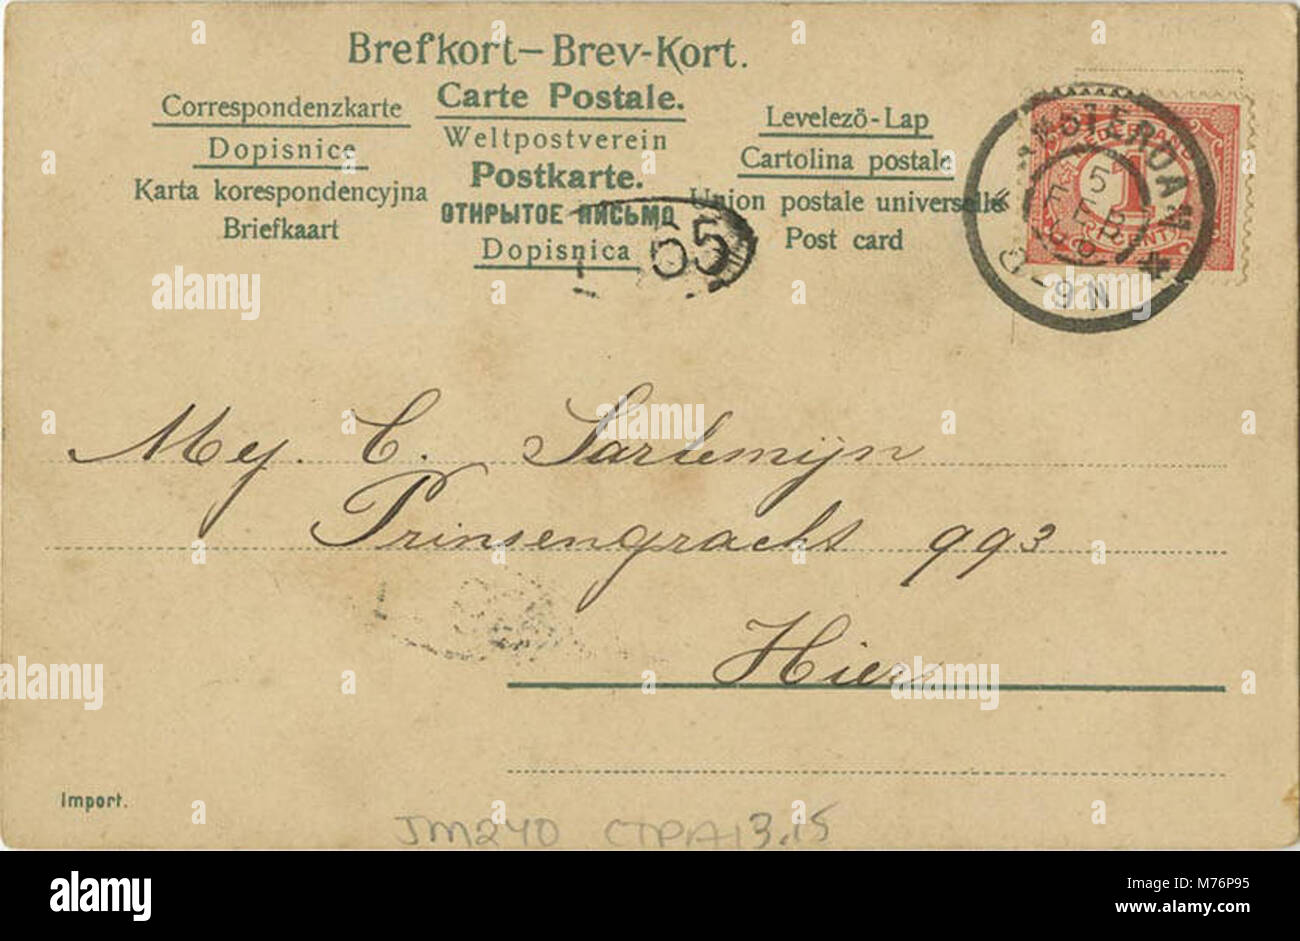 Brefkort – Brev-Kort.
Correspondenzkarte
Carte Postale.
Levelező-Lap
Dopisnice
Weltpostverein
Cartolina postale
Karta korespondencyjna
Postkarte.
Union postale universelle
Briefkaart
ОТКРЫТОЕ ПИСЬМО
Post card
Dopisnica
65
AMSTERDAM
5
FEB
8-9N
NEDERLAND
1
CENT
Mej. C. Sartemijn
Prinsengracht 993
Hier
Import.
JM240 CTPA13.15
alamy
alamy
Image ID: M76P95
www.alamy.com